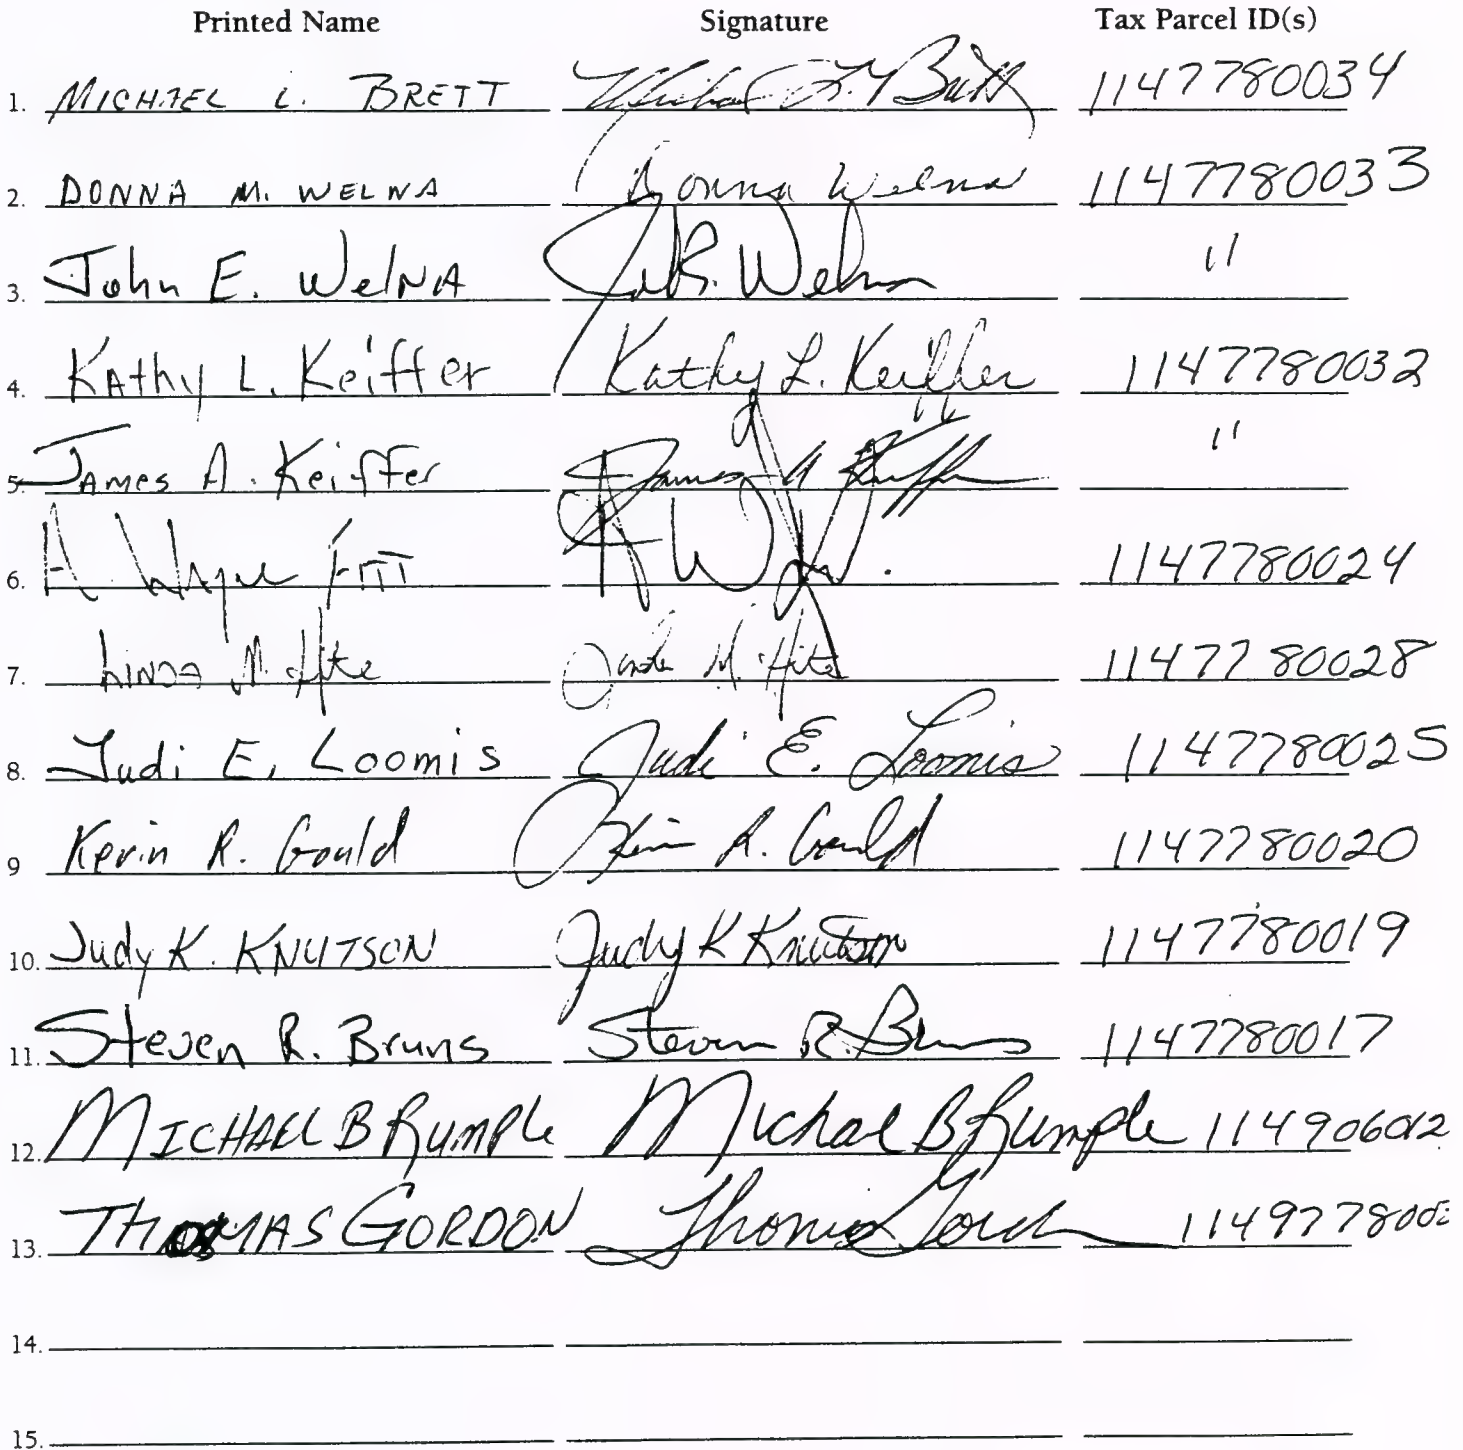 Printed Name Signature Tax Parcel ID(s)
1. MICHAEL L. BRETT Michael L. Brett 1147780034
2. DONNA M. WELNA Donna Welna 1147780033
3. John E. WelNA Welna "
4. KAthy L. Keiffer Kathy L. Keiffer 1147780032
5. JAmes A. Keiffer James A Keiffer "
6. A Wayne A W 1147780024
7. LINDA M. Hite Linda M. Hite 1147780028
8. Judi E. Loomis Judi E. Loomis 1147780025
9 Kevin R. Gould Kevin R. Gould 1147780020
10. Judy K. KNUTSON Judy K Knutson 1147780019
11. Steven R. Bruns Steven R. Bruns 1147780017
12. MICHAEL B Rumple Michael B Rumple 114906012
13. THOMAS GORDON Thomas Gordon 114977800
14.
15.